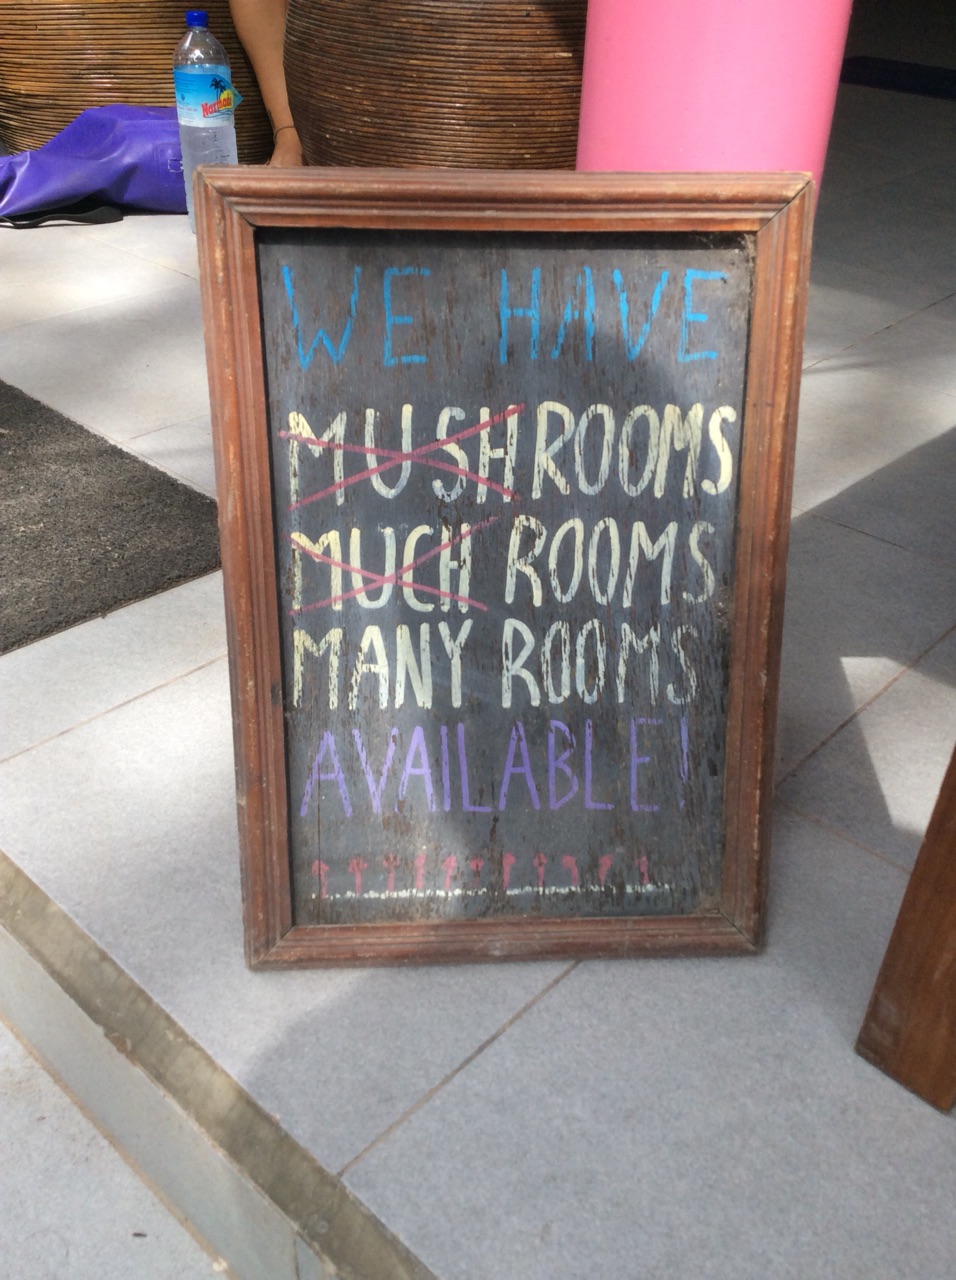 Narmada
WE HAVE
MUSHROOMS
MUCH ROOMS
MANY ROOMS
AVAILABLE!